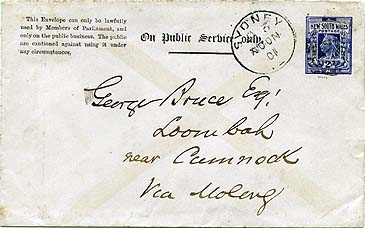 This Envelope can only be lawfully
used by Members of Parliament, and
only on the public business. The public
are cautioned against using it under
any circumstances.
On Public Service only.
SYDNEY
NOON
01
NEW SOUTH WALES
George Bruce Esqr
Loombah
near Cumnock
Via Molong